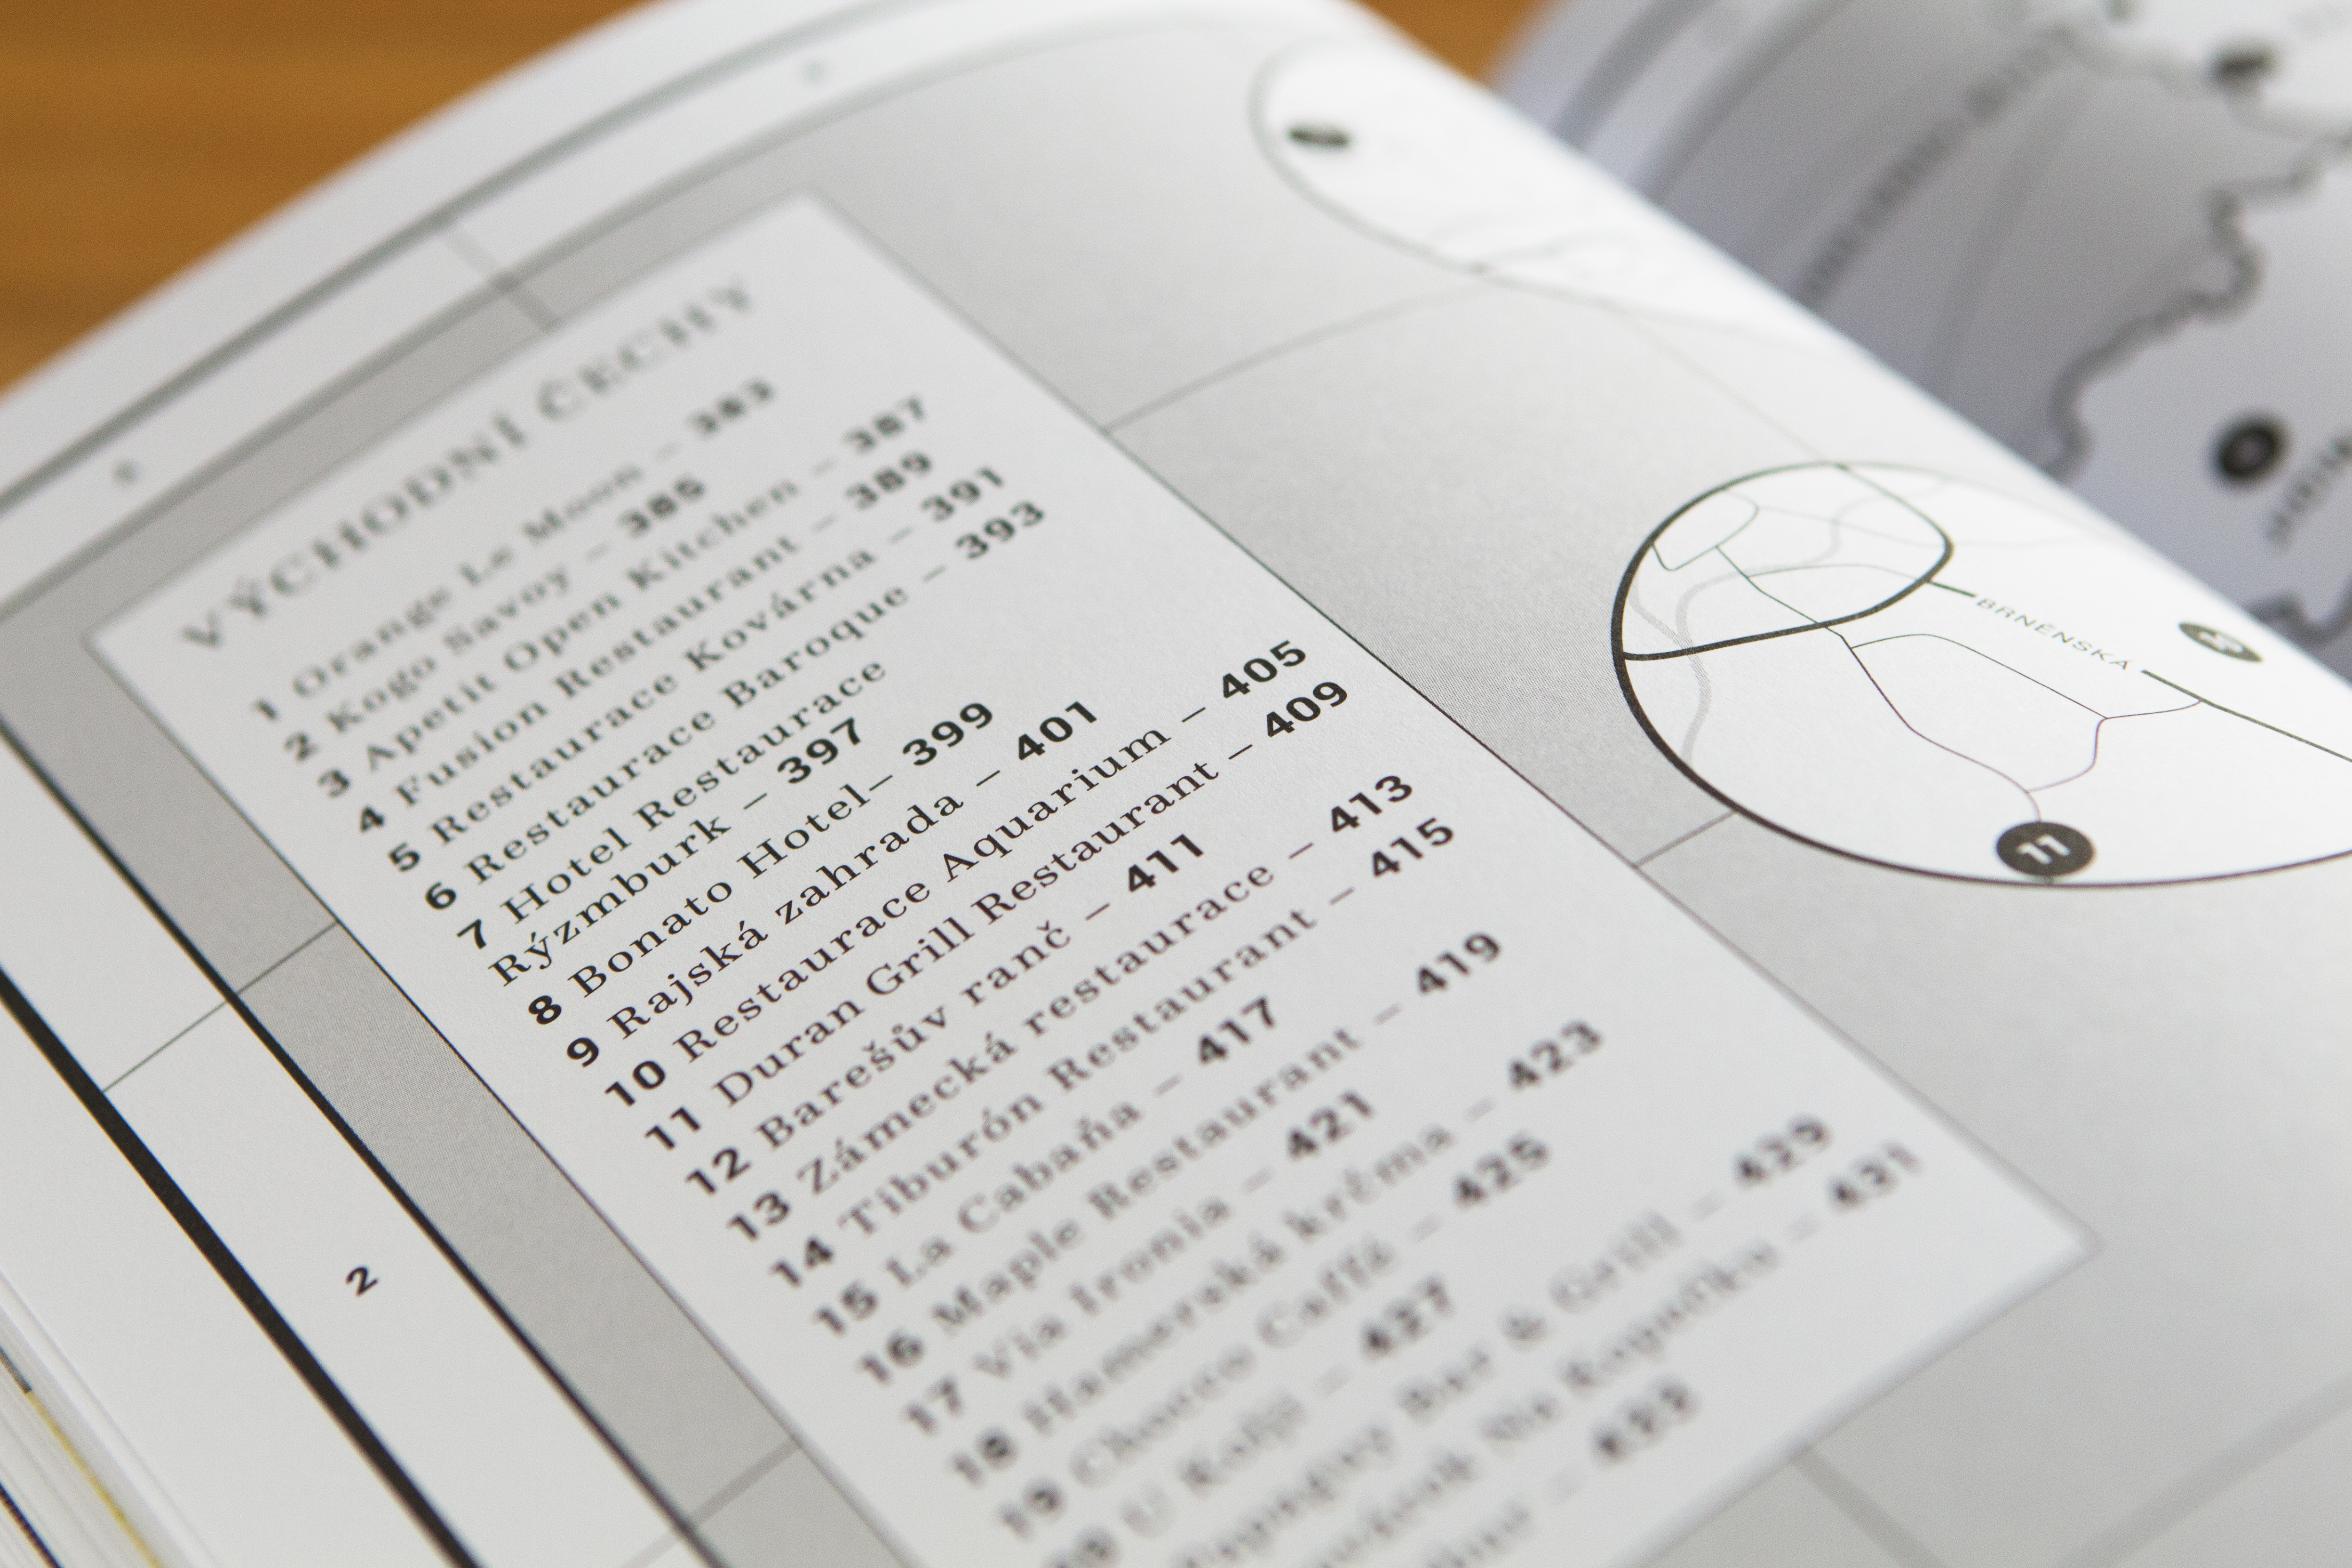 VÝCHODNÍ ČECHY
1 Orange Le Moon – 383
2 Kogo Savoy – 385
3 Apetit Open Kitchen – 387
4 Fusion Restaurant – 389
5 Restaurace Kovárna – 391
6 Restaurace Baroque – 393
7 Hotel Restaurace
Rýzmburk – 397
8 Bonato Hotel– 399
9 Rajská zahrada – 401
10 Restaurace Aquarium – 405
11 Duran Grill Restaurant – 409
12 Barešův ranč – 411
13 Zámecká restaurace – 413
14 Tiburón Restaurant – 415
15 La Cabaña – 417
16 Maple Restaurant – 419
17 Via Ironia – 421
18 Hamerská krčma – 423
19 Chocco Caffé – 425
20 U Kolji – 427
Bar & Grill – 429
– 431
2
BRNĚNSKÁ
11